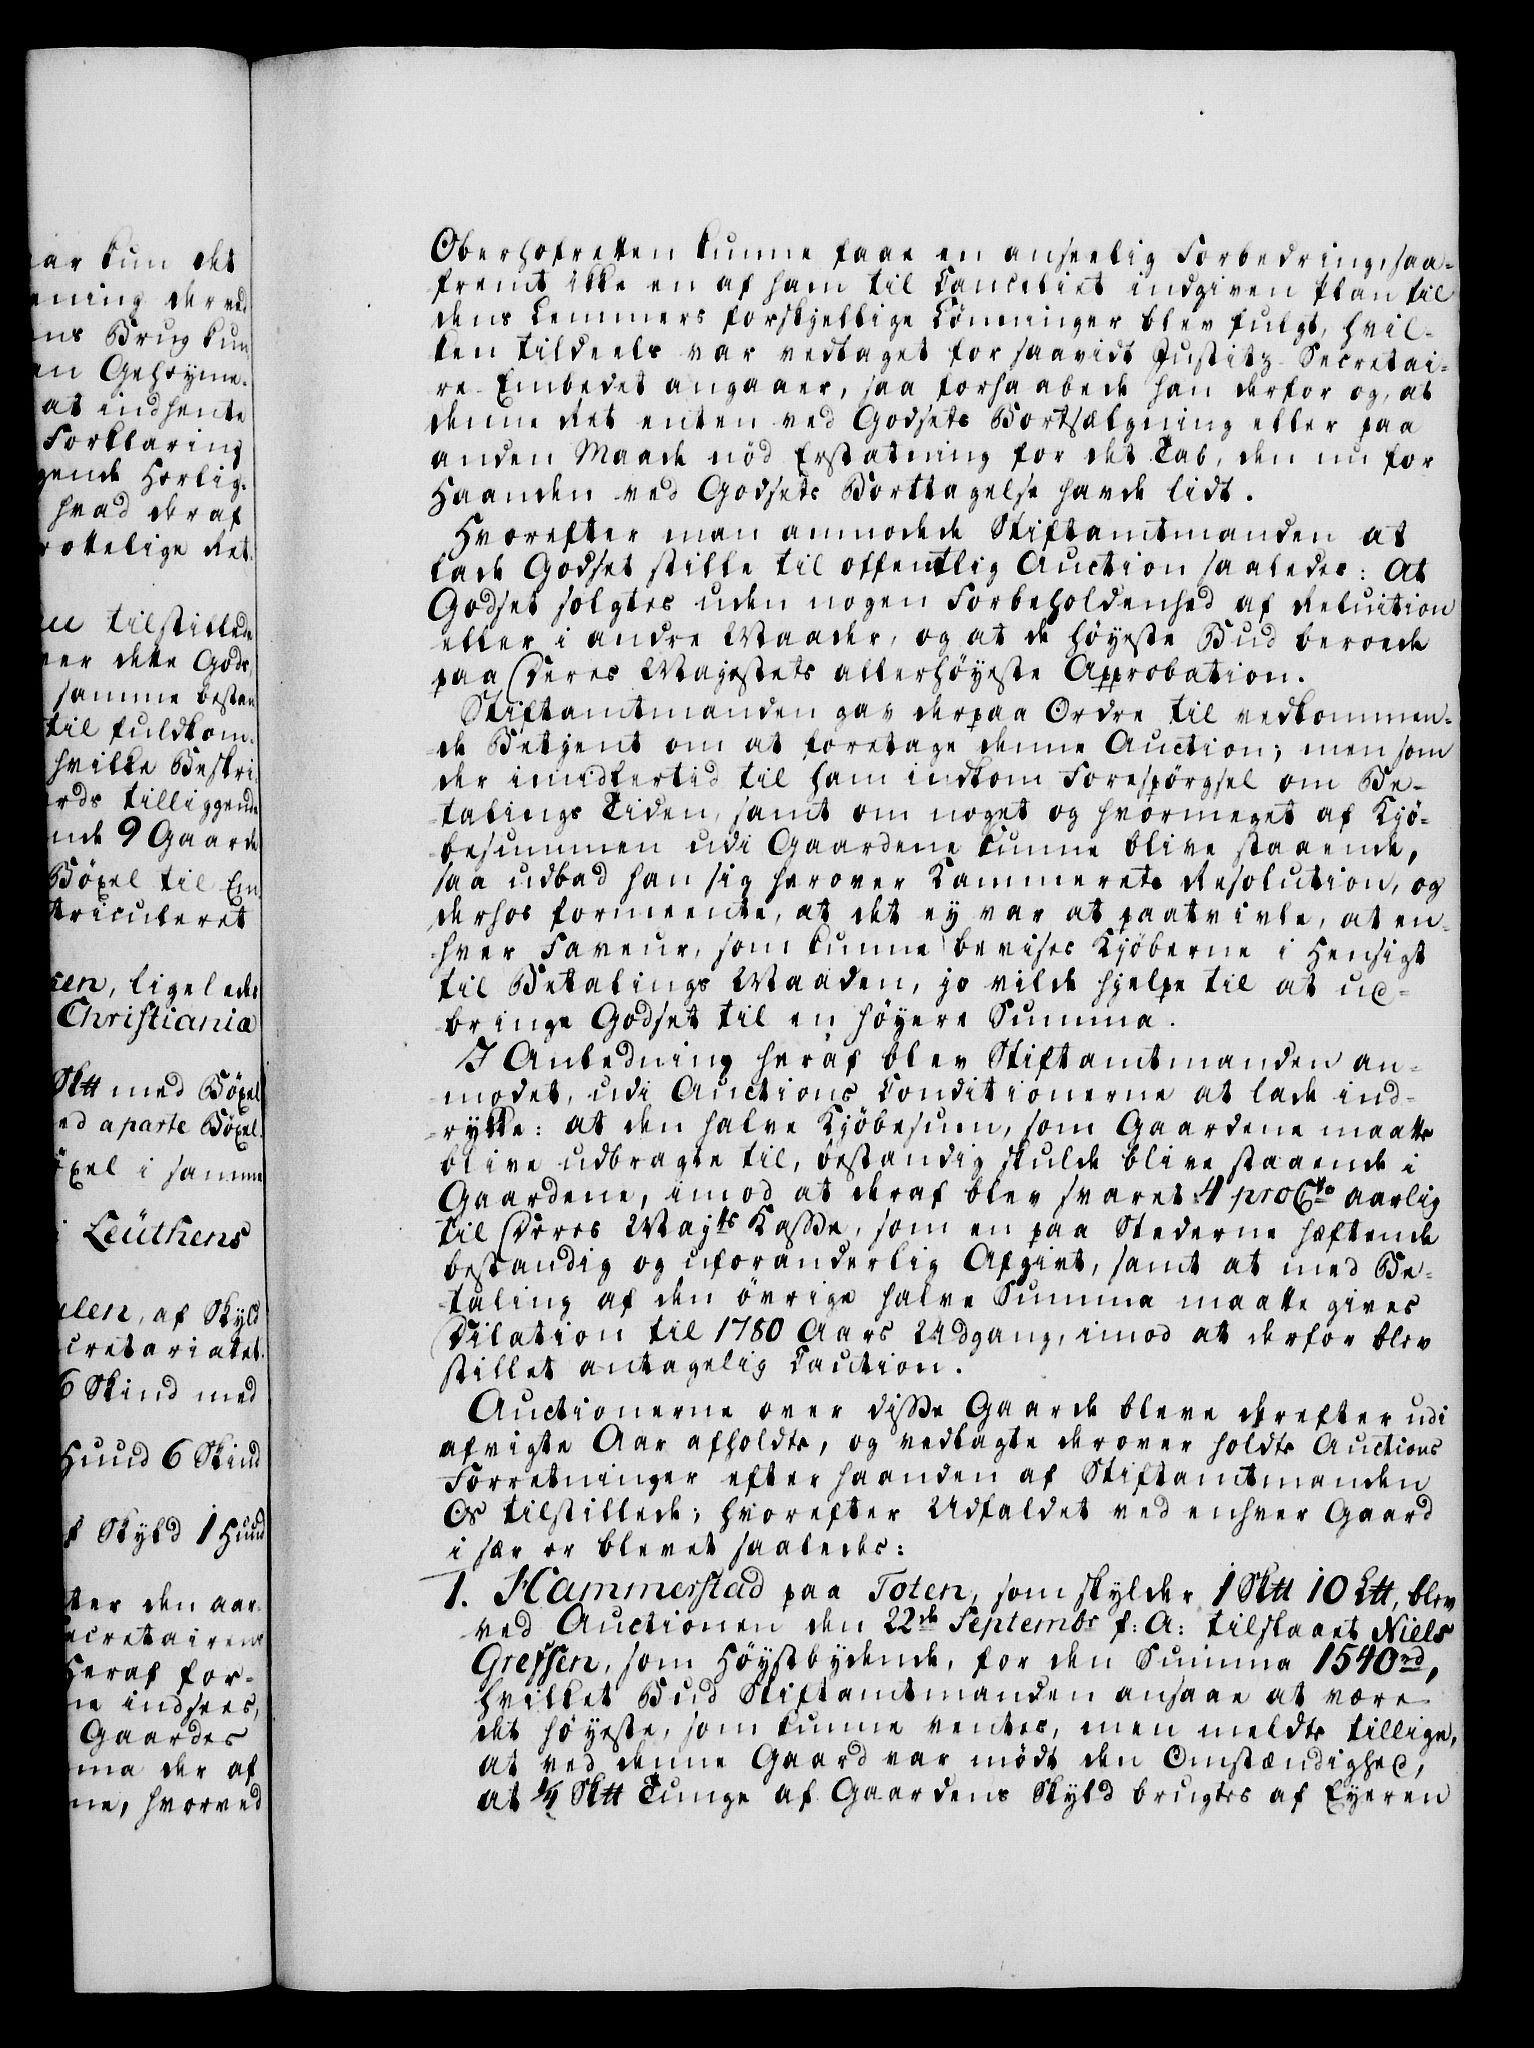 ar kun det
ening derved
ns Brug kun
en Gehöyme-
at indhente
Forklaring
gende Herlig-
hvad deraf
rettelige Ret.
tilstillede
er dette Gods,
samme bestaa
til fuldkom-
hvilke Beskri-
rds tilliggende
nde 9 Gaarde
Böxel til Em
triculeret
sen, ligeledes
Christiania
Sktt med Böxel
ed aparte Böxel.
öxel i samme
Leüthens
elen, af Skyld
cretariatet.
6 Skind med
Huud 6 Skind
f Skyld 1 Huud
ter den aar-
ecretairens
Heraf for-
ne indsees,
Gaardes
ma der af
ne, hvorved
Oberhofretten kunne faae en anseelig Forbedring, saa-
fremt ikke en af ham til Cancelliet indgiven Plan til
dens Lemmers forskjellige Lönninger blev fulgt, hvil-
ken tildeels var vedtaget for saavidt Justitz-Secretai-
re-Embedet angaaer, saa forhaabede han derfor og, at
denne Ret enten ved Godsets Bortsælgning eller paa
anden Maade nöd Erstatning for det Tab, den nu for
Haanden ved Godsets Borttagelse havde lidt.
Hvorefter man anmodede Stiftamtmanden at
lade Godset stille til offentlig Auction saaledes: At
Godset solgtes uden nogen Forbeholdenhed af Reluition
eller i andre Maader, og at de höyeste Bud beroede
paa Deres Majestets allerhöyeste Approbation.
Stiftamtmanden gav derpaa Ordre til vedkommen-
de Betjent om at foretage denne Auction; men som
der imidlertid til ham indkom Forespörgsel om Be-
talings Tiden, samt om noget og hvormeget af Kjö-
besummen udi Gaardene kunne blive staaende,
saa udbad han sig herover Kammerets Resolution, og
derhos formeente, at det ey var at paatvivle, at en-
hver Faveur, som kunne bevises Kjöberne i Hensigt
til Betalings Maaden, jo vilde hjelpe til at ud-
bringe Godset til en höyere Summa.
I Anledning heraf blev Stiftamtmanden an-
modet, udi Auctions Conditionerne at lade ind-
rykke: at den halve Kjöbesum, som Gaardene maatte
blive udbragte til, bestandig skulde blive staaende i
Gaardene, imod at deraf blev svaret 4 pro Cto aarlig
til Deres Majts Kasse, som en paa Stederne hæftende
bestandig og uforanderlig Afgivt, samt at med Be-
taling af den övrige halve Summa maatte gives
Dilation til 1780 Aars Udgang, imod at derfor blev
stillet antagelig Caution.
Auctionerne over disse Gaarde bleve derefter udi
afvigte Aar afholdte, og vedtagte derover holdte Auctions
Forretninger efterhaanden af Stiftamtmanden
Os tilstillede; hvorefter Udfaldet ved enhver Gaard
i sær er blevet saaledes:
1. Hammerstad paa Toten, som skylder 1 Sktt 10 Ltt, blev
ved Auctionen den 22de Septembr f: A: tilslaaet Niels
Grefsen, som Höystbydende, for den Summa 1540rd,
hvilket Bud Stiftamtmanden ansaae at være
det höyeste, som kunne ventes, men meldte tillige,
at ved denne Gaard var mödt den Omstændighed,
at ¼ Sktt Tunge af Gaardens Skyld brugtes af Eyeren